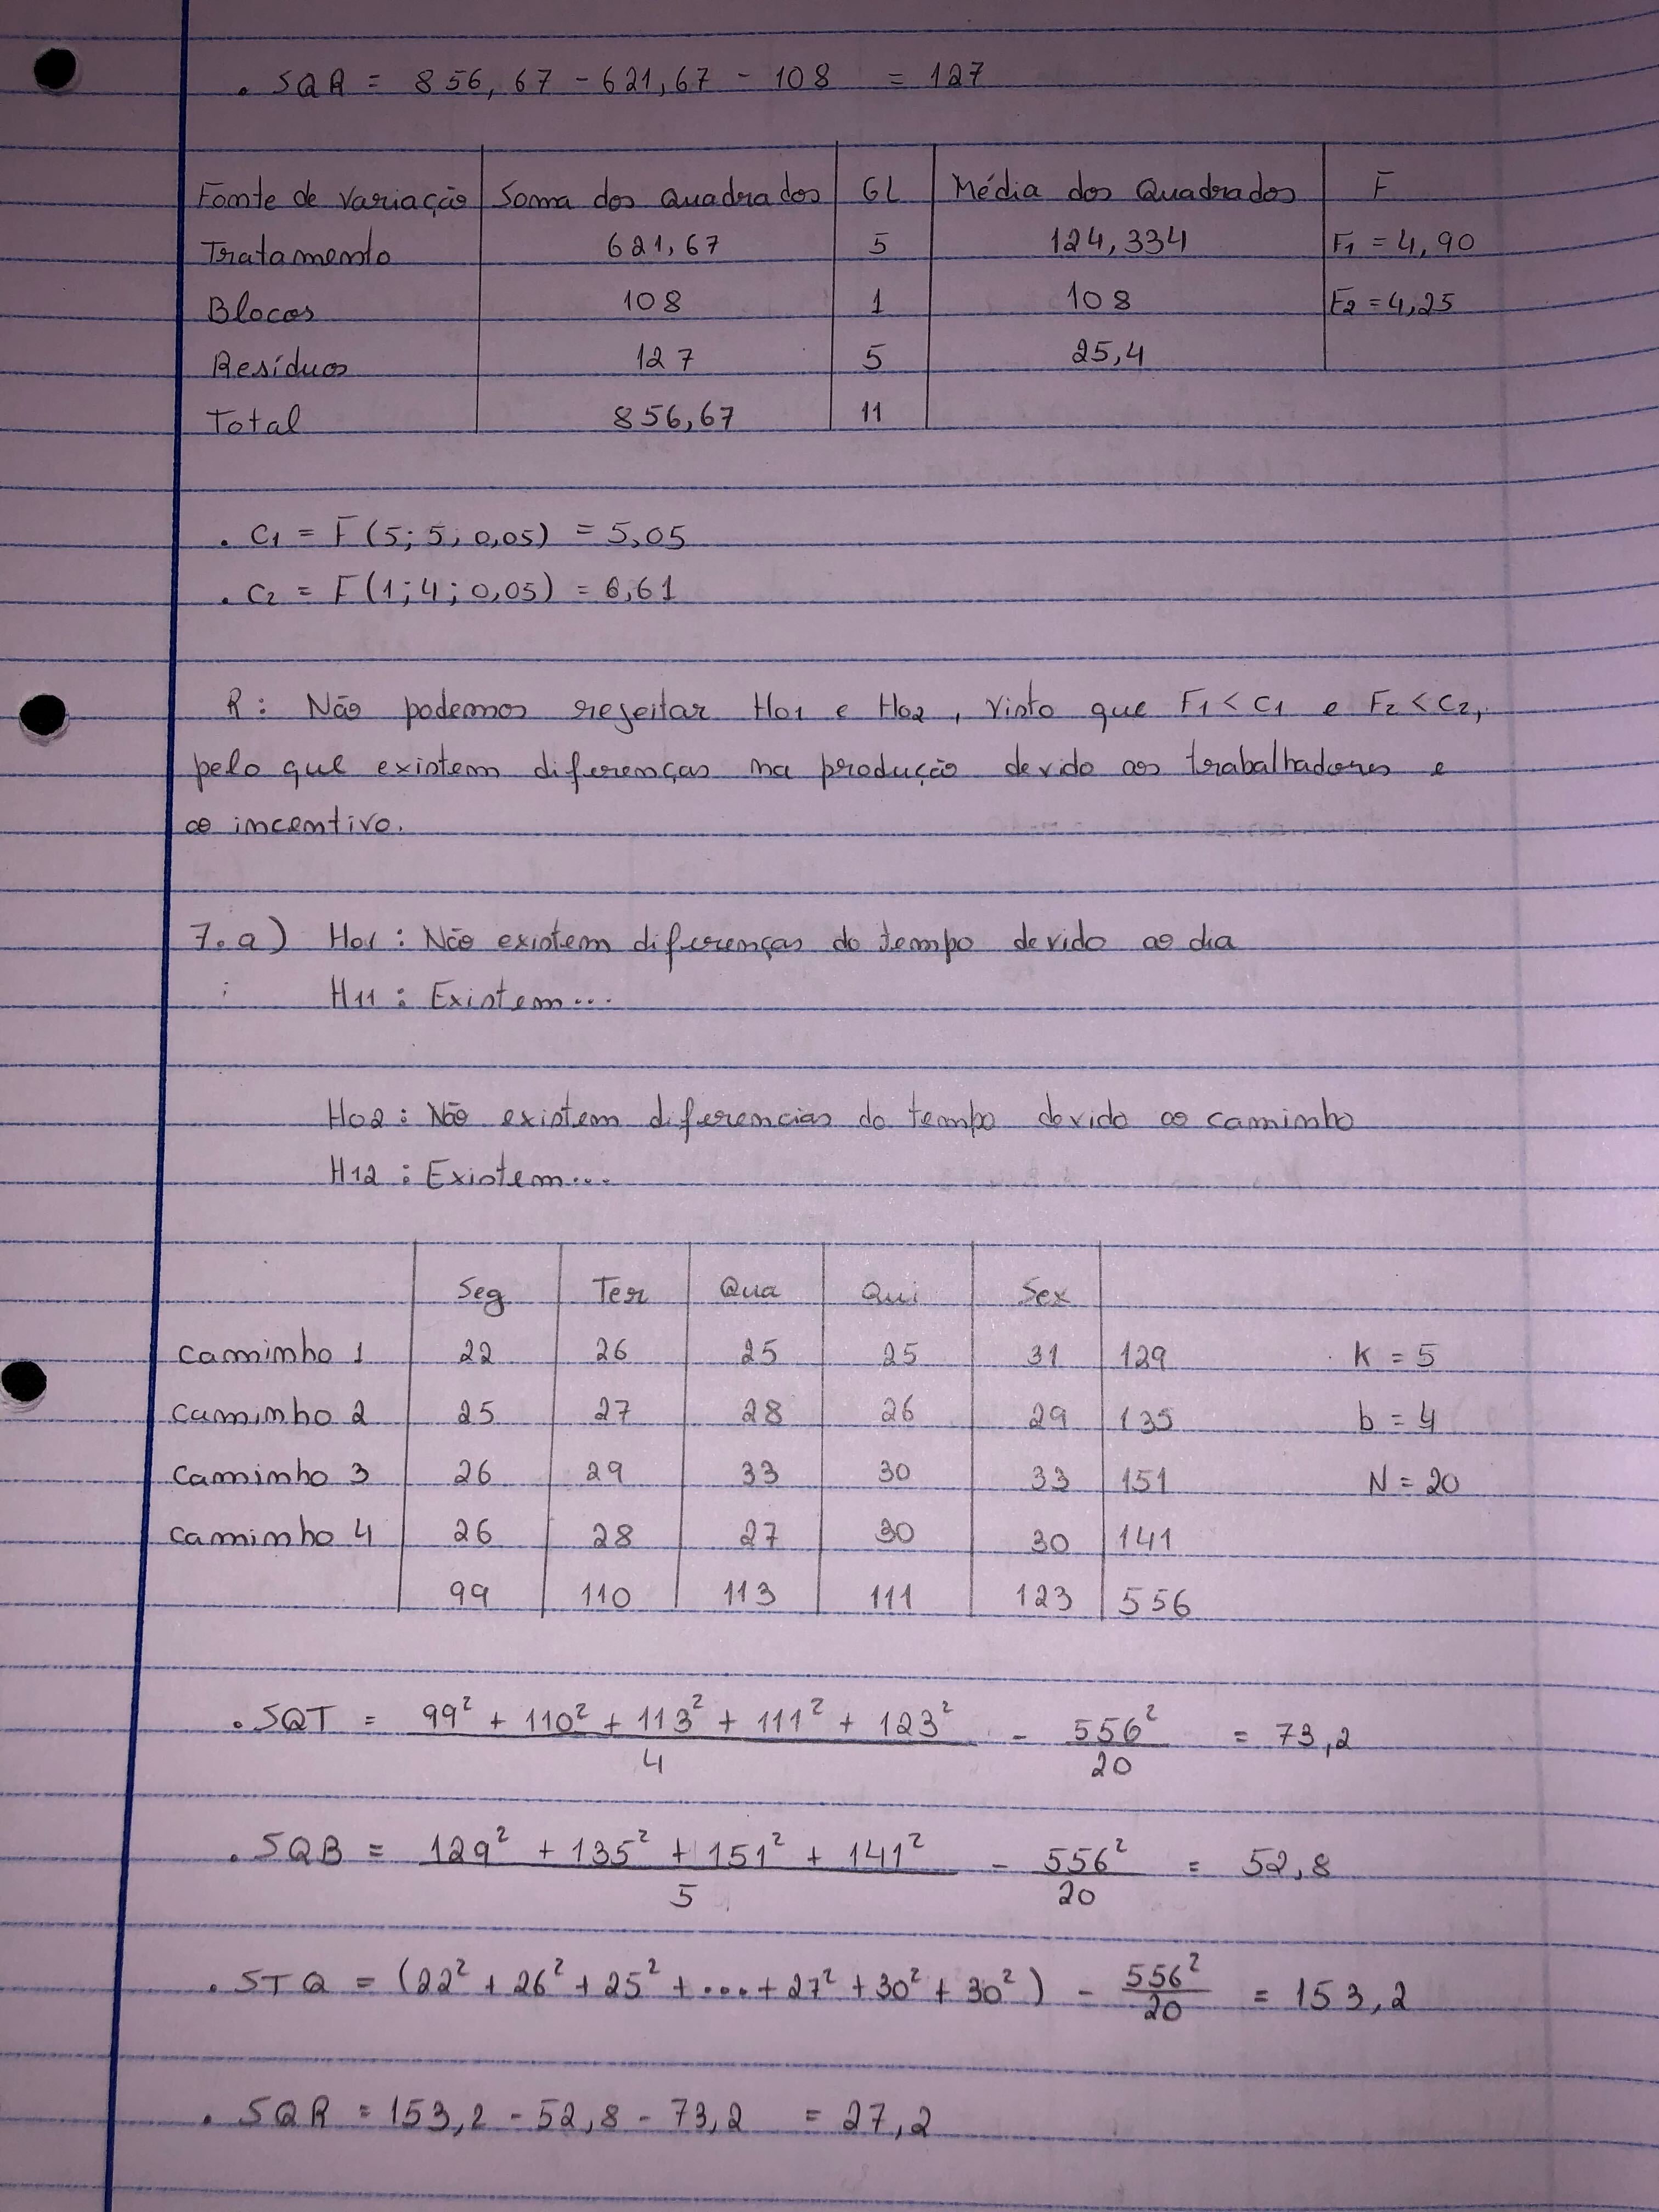 . SQR = 856,67 - 621,67 - 108 = 127
Fonte de variação Soma dos Quadrados GL Média dos Quadrados F
Tratamento 621,67 5 124,334 F1 = 4,90
Blocos 108 1 108 F2 = 4,25
Resíduos 127 5 25,4
Total 856,67 11
. C1 = F (5; 5; 0,05) = 5,05
. C2 = F (1; 4; 0,05) = 6,61
R: Não podemos rejeitar H01 e H02, visto que F1 < C1 e F2 < C2,
pelo que existem diferenças na produção devido aos trabalhadores e
ao incentivo.
7.a) H01 : Não existem diferenças do tempo devido ao dia
H11 : Existem...
H02 : Não existem diferencias do tempo devido ao caminho
H12 : Existem...
Seg Ter Qua Qui Sex
caminho 1 22 26 25 25 31 129 K = 5
caminho 2 25 27 28 26 29 135 b = 4
caminho 3 26 29 33 30 33 151 N = 20
caminho 4 26 28 27 30 30 141
99 110 113 111 123 556
. SQT = (99² + 110² + 113² + 111² + 123²)/4 - 556²/20 = 73,2
. SQB = (129² + 135² + 151² + 141²)/5 - 556²/20 = 52,8
. STQ = (22² + 26² + 25² + ... + 27² + 30² + 30²) - 556²/20 = 153,2
. SQR = 153,2 - 52,8 - 73,2 = 27,2